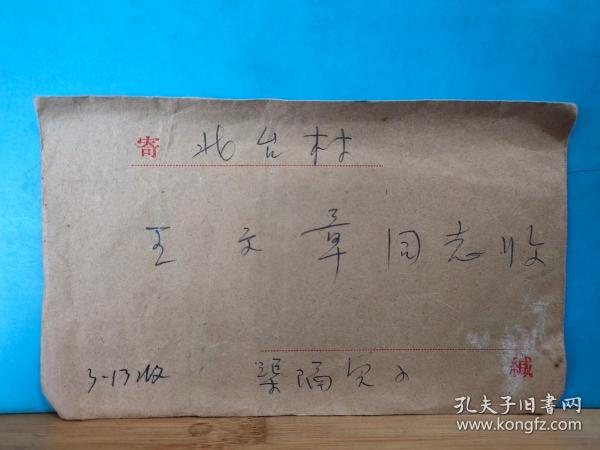 寄 北台村
王文章同志收
缄
3-13收
孔夫子旧书网
www.kongfz.com